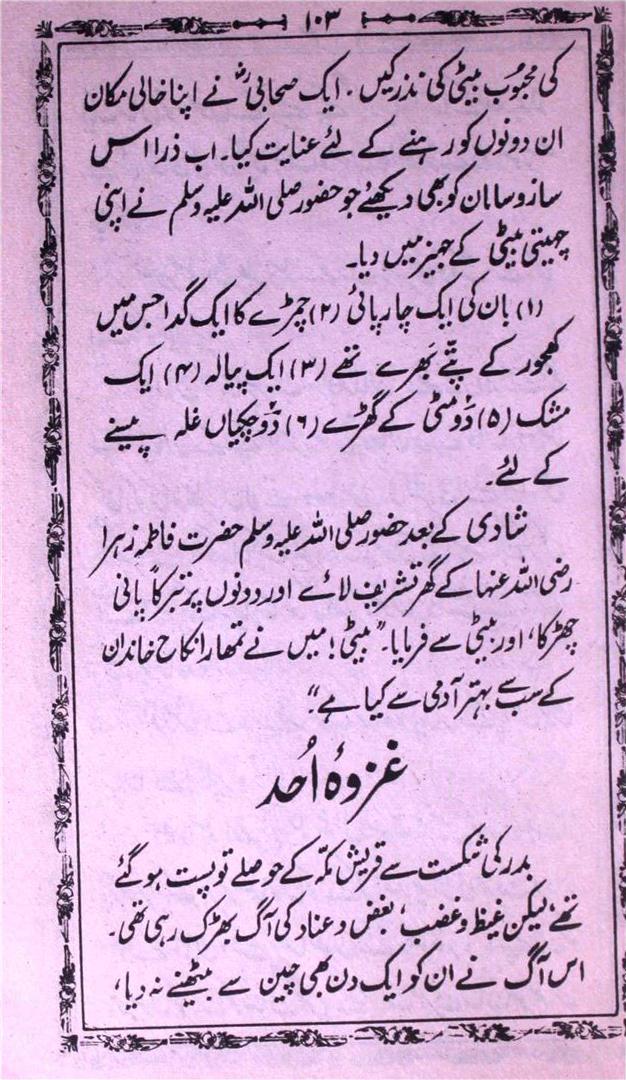 ۱۰۳
کی محبوُب بیٹی کی نذر کیں۔ ایک صحابیؓ نے اپنا خالی مکان
ان دونوں کو رہنے کے لئے عنایت کیا۔ اب ذرا اس
ساز و سامان کو بھی دیکھئے جو حضور صلی اللہ علیہ وسلم نے اپنی
چہیتی بیٹی کے جہیز میں دیا۔
(۱) بان کی ایک چارپائی (۲) چمڑے کا ایک گدا جس میں
کھجور کے پتّے بَھرے تھے (۳) ایک پیالہ (۴) ایک
مشک (۵) دُو مٹی کے گھڑے (۶) دُو چکیاں غلہ پیسنے
کے لئے۔
شادی کے بعد حضور صلی اللہ علیہ وسلم حضرت فاطمہ زہرا
رضی اللہ عنہا کے گھر تشریف لائے اور دونوں پر تبرکاً پانی
چھڑکا، اور بیٹی سے فرمایا۔ "بیٹی! میں نے تمھارا نکاح خاندان
کے سب سے بہتر آدمی سے کیا ہے"
غزوۂ اُحد
بدر کی شکست سے قریش مکّہ کے حوصلے تو پست ہو گئے
تھے، لیکن غیظ و غضب، بغض و عناد کی آگ بھڑک رہی تھی۔
اس آگ نے ان کو ایک دن بھی چین سے بیٹھنے نہ دیا،